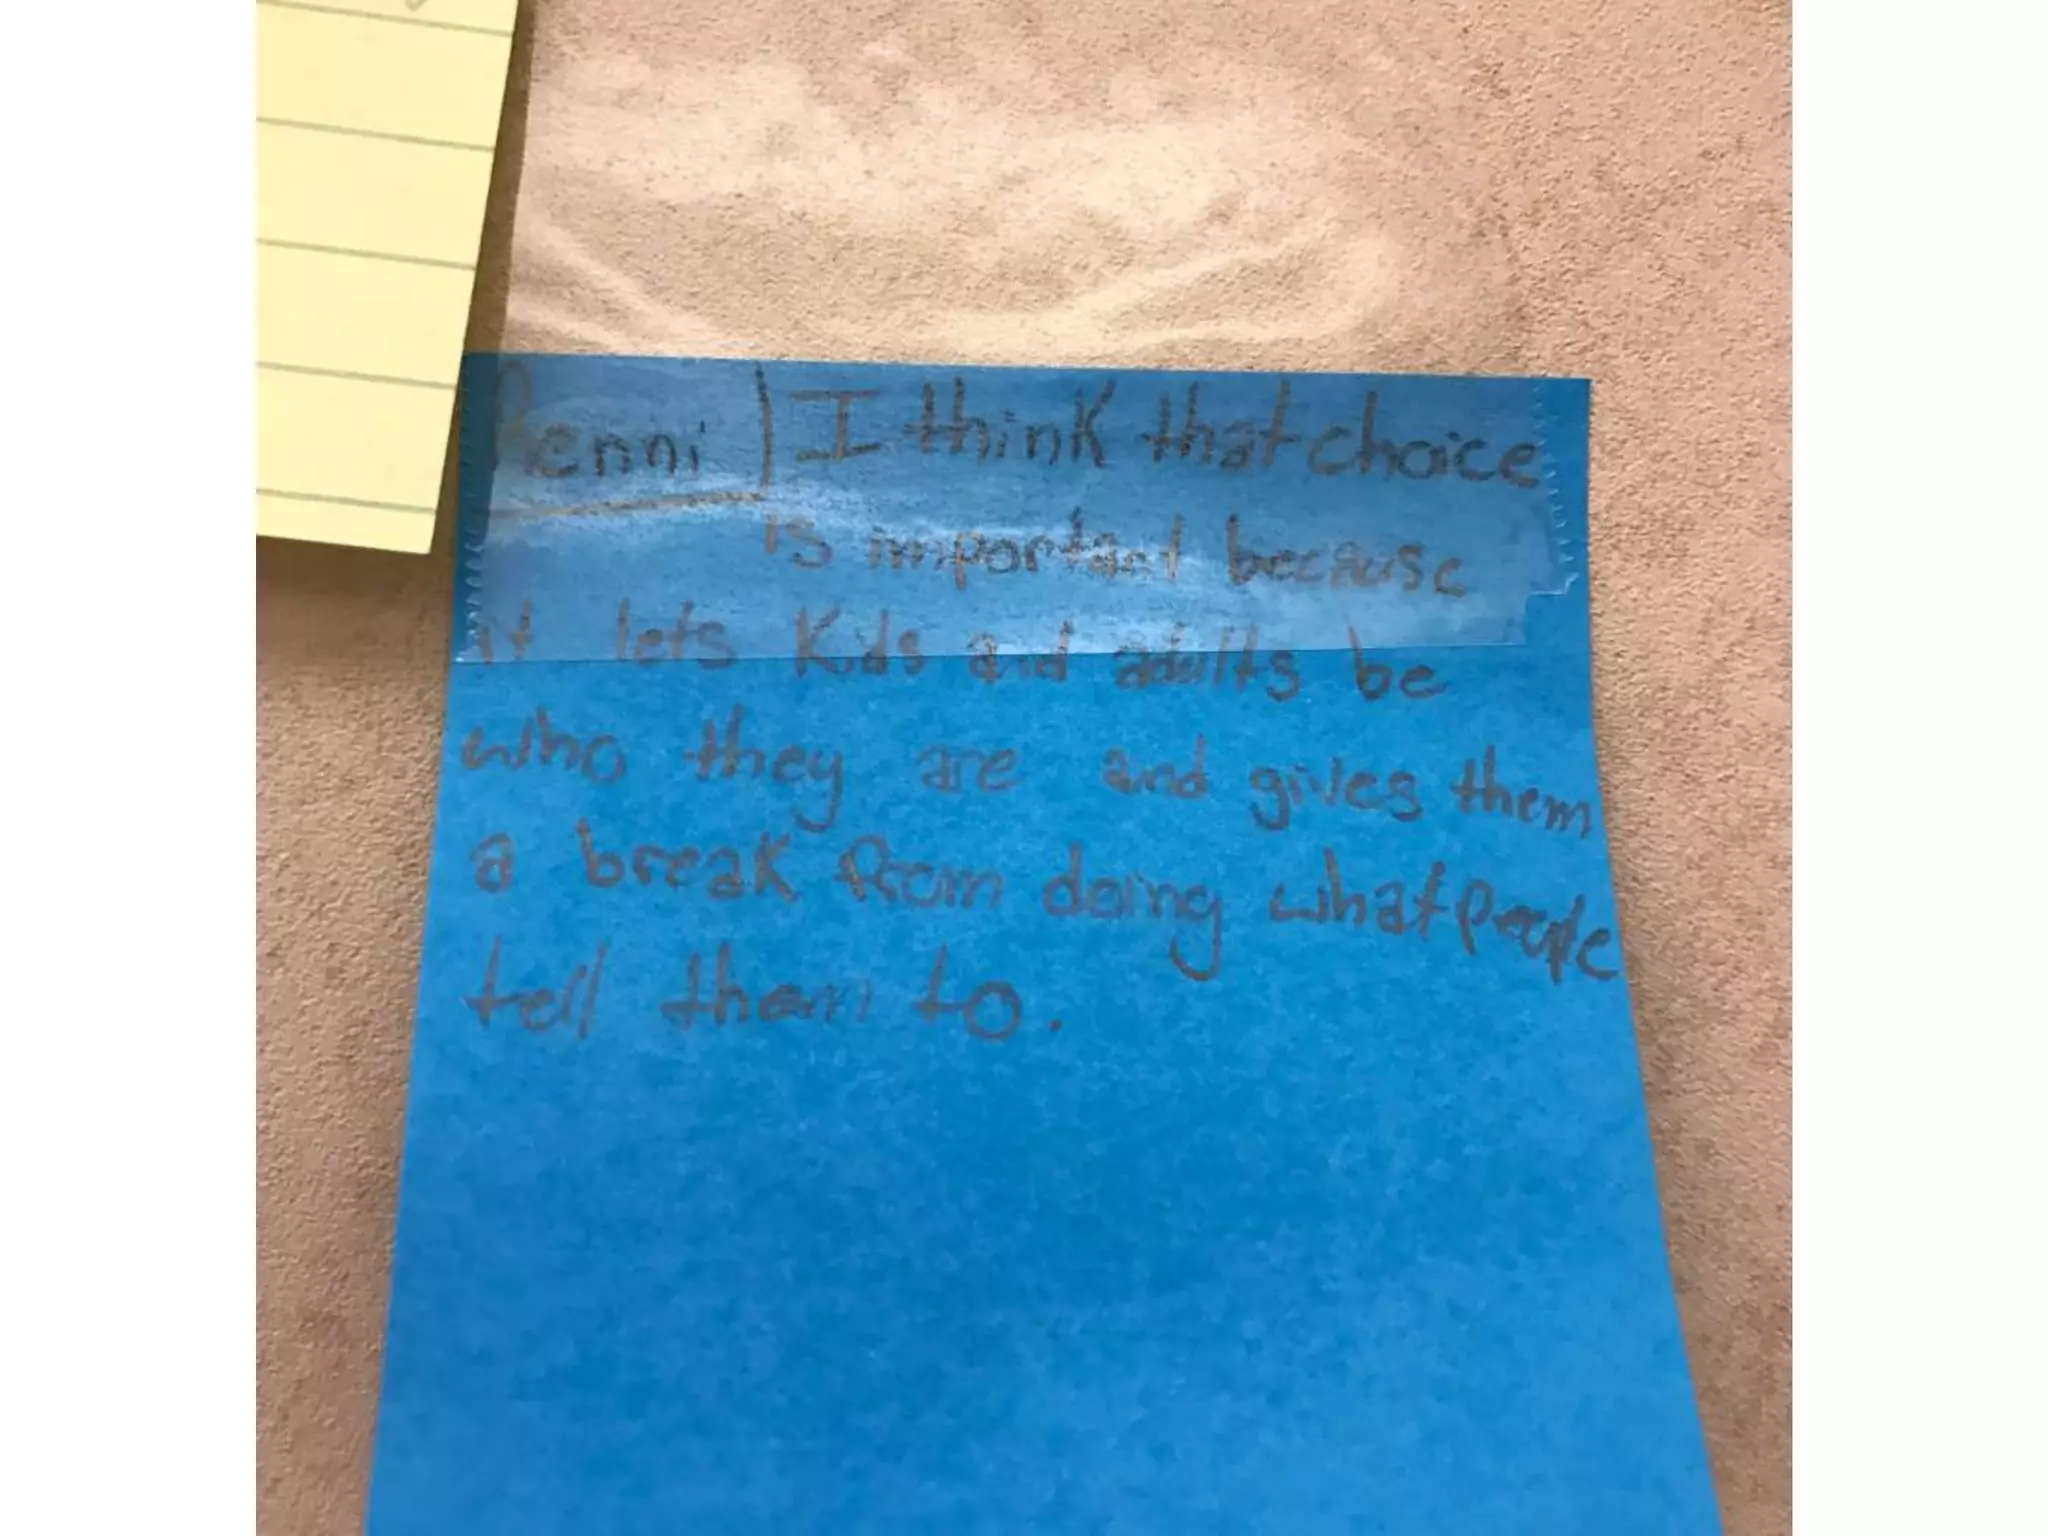 I think that choice
is important because
it lets kids and adults be
who they are and gives them
a break from doing what people
tell them to.